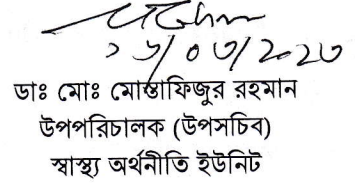 ১৬/০৩/২০২৩
ডাঃ মোঃ মোস্তাফিজুর রহমান
উপপরিচালক (উপসচিব)
স্বাস্থ্য অর্থনীতি ইউনিট